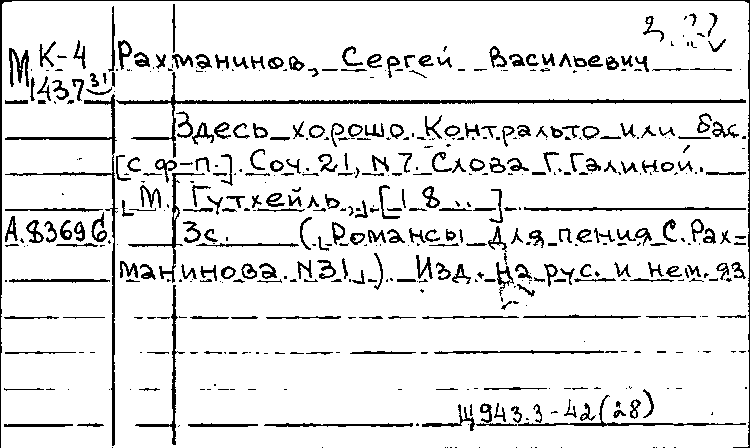 М К-4 Рахманинов, Сергей Васильевич
1437 31
Здесь хорошо. Контральто или бас
[с ф-п.]. Соч. 21, N7. Слова Г. Галиной.
М., Гутхейль, [18..]
А.83696 3с. (Романсы для пения С. Рах=
манинова. N31). Изд. на рус. и нем. яз
Щ943.3-42(28)